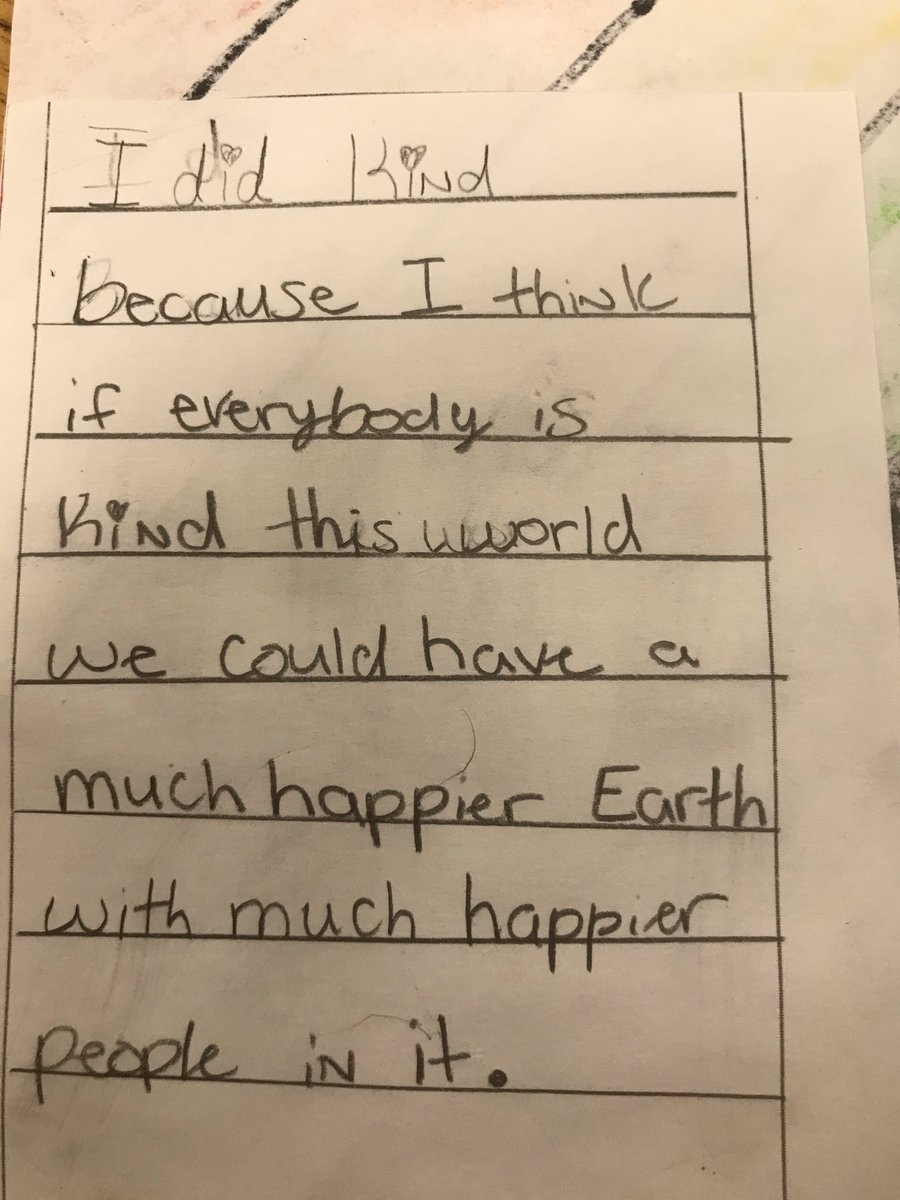 I did Kind
because I think
if everybody is
Kind this world
we could have a
much happier Earth
with much happier
people in it.